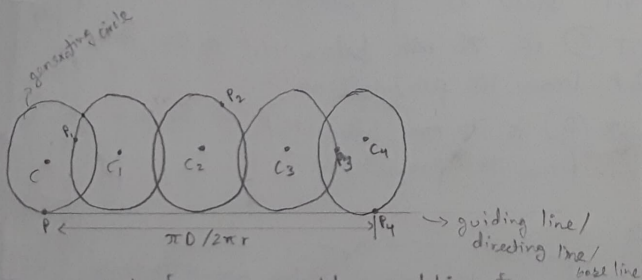 generating circle
P2
P1
C
C1
C2
C3
P3
C4
P
πD/2πr
P4
guiding line/
directing line/
base line